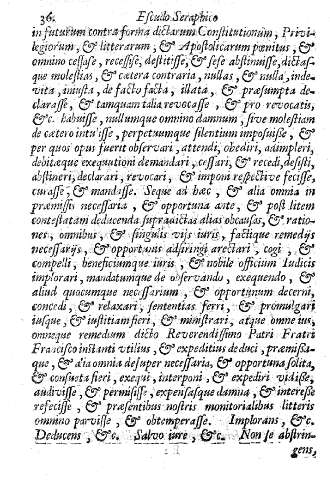 36. Escudo Seraphico
in futurum contra forma dictarum Constitutionum, Privi-
legiorum, & litterarum, & Apostolicarum pœnitus, &
omnino cessasse, recessisse, destitisse, & sese abstinuisse, dictas-
que molestias, & cætera contraria, nullas, & nulla, inde-
vita, iniusta, de facto facta, illata, & præsumpta de-
clarasse, & tamquam talia revocasse, & pro revocatis,
&c. habuisse, nullumque omnino damnum, sive molestiam
de cætero intu'isse, perpetuumque silentium imposuisse, &
per quos opus fuerit observari, attendi, obediri, adimpleri,
debitæque exequutioni demandari, cessari, & recedi, desisti,
abstineri, declarari, revocari, & imponi respective fecisse,
curasse, & mandasse. Seque ad hæc, & alia omnia in
præmissis necessaria, & opportuna ante, & post litem
contestatam deducenda supradictas alias ob causas, & ratio-
nes, omnibus, & singulis vijs iuris, factique remedijs
necessarijs, & opportunis adstringi arectari, cogi, &
compelli, beneficiumque iuris, & nobile officium Iudicis
implorari, mandatumque de observando, exequendo, &
aliud quocumque necessarium, & opportunum decerni,
concedi, & relaxari, sententias ferri, & promulgari
iusque, & iustitiam fieri, & ministrari, atque omne ius,
omneque remedium dicto Reverendissimo Patri Fratri
Francisco instanti utilius, & expeditius deduci, præmissa-
que, & alia omnia desuper necessaria, & opportuna solita,
& consueta fieri, exequi, interponi, & expediri vidisse,
audivisse, & permisisse, expensasque damna, & interesse
refecisse, & præsentibus nostris monitorialibus litteris
omnino parvisse, & obtemperasse. Implorans, &c.
Deducens, &c. Salvo iure, &c. Non se abstrin-
gens,